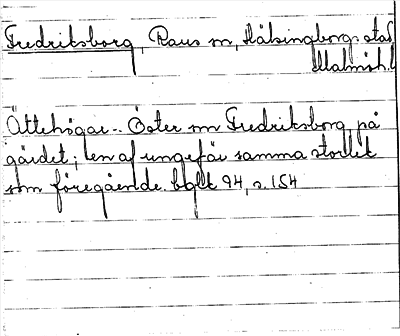 Fredriksborg, Raus sn, Hälsingborgs stad
Malmöh. l.
Ättehögar.- Öster om Fredriksborg på
gärdet; en af ungefär samma storlek
som föregående. bglk 94, s. 154